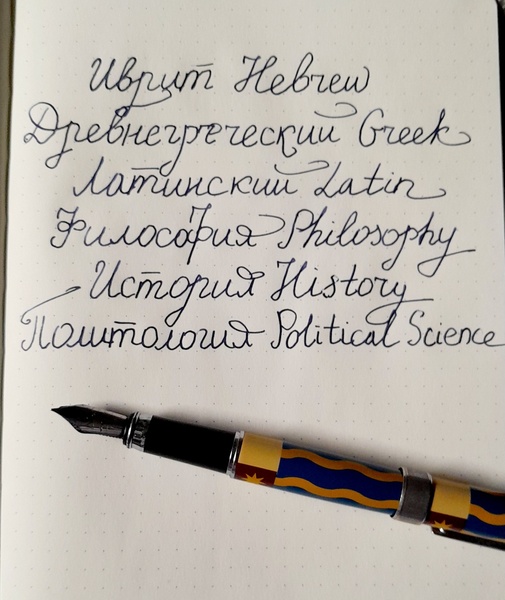 Иврит Hebrew
Древнегреческий Greek
Латинский Latin
Философия Philosophy
История History
Политология Political Science